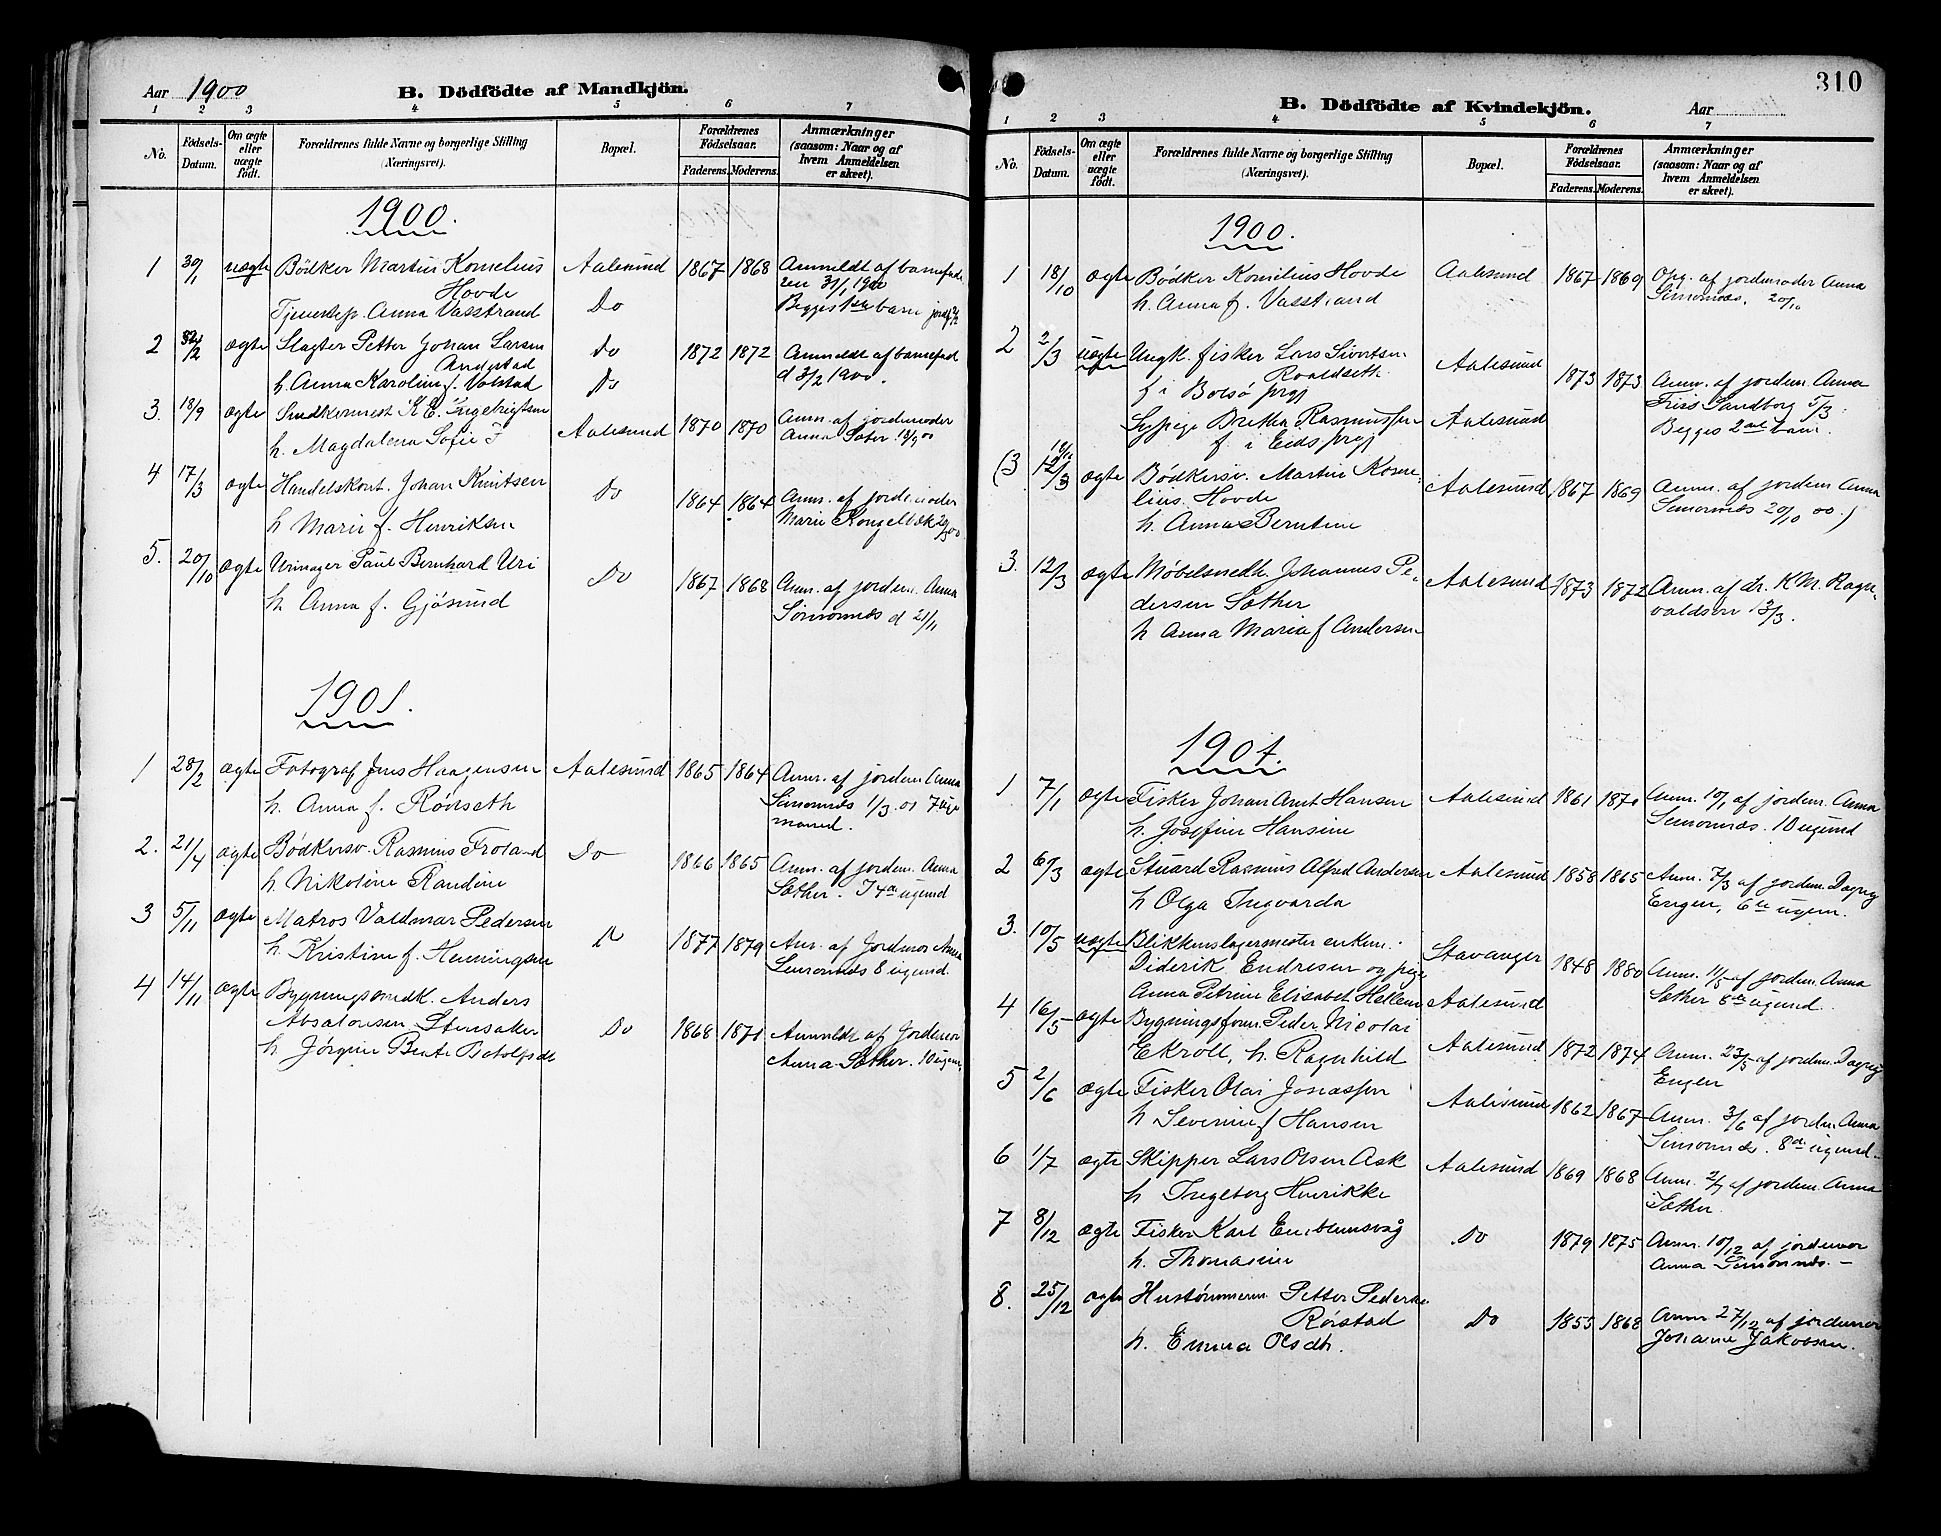 Aar 1900 B. Dödfödte af Mandkjön.
1 2 3 4 5 6 7
No. Födsels-Datum. Om ægte eller uægte födt. Forældrenes fulde Navne og borgerlige Stilling (Næringsvei). Bopæl. Forældrenes Födselsaar. Faderens. Moderens. Anmærkninger (saasom: Naar og af hvem Anmeldelsen er skeet).
1900.
1 30/1 uægte Bödker Martin Kornelius Aalesund 1867 1868 Anmeldt af barnefade
Hovde ren 31/1 1900
Tjenestep. Anna Vasstrand Do Begges 1ste barn
2 2/2 ægte Slagter Petter Johan Larsen Do 1872 1872 Anmeldt af barnefad
Anderstad d 3/2 1900.
h. Anna Karoline f. Valstad Do
3. 18/9 ægte K. E. Ingebrigtsen Aalesund 1870 1870 Anm. af jordemoder
h. Magdalena Sofie F Anna Sæter 18/9 00
4 17/3 ægte Handelskont. Johan Knutsen Do 1864 1864 Anm. af jordemoder
h Marie f. Henriksen Marie Kongelbæk 20/3 00
5. 20/10 ægte Urmager Paul Bernhard Uri Do 1867 1868 Anm. af jordem. Anna
h. Anna f. Gjøsund Simonnæs d 21/11
1901.
1 28/2 ægte Fotograf Jens Haagensen Aalesund 1865 1864 Anm. af jordem Anna
h. Anna f. Rönseth Simonnæs 1/3. 01 7de
maaned.
2. 21/4 ægte Bødkersv. Rasmus Froland Do 1866 1865 Anm. af jordem. Anna
h. Nikoline Randine Sæther. I 4a ugemd
3 5/11 ægte Matros Valdmar Pedersen Do 1877 1879 Anm. af Jordmor Anna
h. Kristine f. Henningsen Simonnæs 8 ugemd.
4 14/11 ægte Bygningssnedk. Anders
Absalonsen Stensaker Do 1868 1871 Anmeldt af Jordemor
h. Jørgine Berte Anna Sæther. 10 ugem.
310
B. Dödfödte af Kvindekjön. Aar
1 2 3 4 5 6 7
No. Födsels-Datum. Om ægte eller uægte födt. Forældrenes fulde Navne og borgerlige Stilling (Næringsvei). Bopæl. Forældrenes Födselsaar. Faderens. Moderens. Anmærkninger (saasom: Naar og af hvem Anmeldelsen er skeet).
1900.
1 18/10 ægte Bødker Kornelius Hovde Aalesund 1867 1869 Opg. af jordemoder Anna
h. Anna f. Vasstrand Simonnæs. 20/10
2 2/3 uægte Ungk. fisker Lars Sivertsen Aalesund 1873 1873 Anm. af jordem. Anna
Roaldseth Friis Sandborg 5/3.
f i Bolsö prgj Begges 2det barn.
Sypige Bretha Rasmussen Aalesund
f. i Eids prgj
(3 12/3 18/10 ægte Bødkersv. Martin Korne- Aalesund 1867 1869 Anm. af jordem Anna
lius Hovde Simonnæs 20/10 00)
h. Anna Berntine
3. 12/3 ægte Møbelsnedk. Johannes Pe- Aalesund 1873 1872 Anm. af dr. K M. Ragn-
dersen Sæther valdson 13/3.
h Anna Maria f Andersen
1901.
1 7/1 ægte Fisker Johan Arnt Hansen Aalesund 1861 1871 Anm. 10/1 af jordem. Anna
h. Josefine Hansine Simonnæs. 10 ugemd
2 6/3 ægte Stuard Rasmus Alfred Andersen Aalesund 1858 1865 Anm. 7/3 af jordem. Dagny
h Olga Ingvarda Engen, 6te ugem.
3. 10/5 uægte Blikkenslagermester enkem. Stavanger 1848 1880 Anm. 11/5 af jordem. Anna
Diderik Endresen og pige Sæther 8de ugemd.
Anna Petrine Elisabet Hellem Aalesund
4 16/5 ægte Bygningsform. Peder Nicolai Aalesund 1872 1874 Anm. 23/5 af jordem. Dagny
Ekroll, h. Ragnhild Engen
5 2/6 ægte Fisker Olai Jonassen Aalesund 1862 1867 Anm. 3/6 af jordem. Anna
h Severine f Hansen Simonnæs. 8de ugemd.
6 1/7 ægte Skipper Lars Olsen Ask Aalesund 1869 1868 Anm. 2/7 af jordem. Anna
h Ingeborg Henrikke Sæther
7 8/12 ægte Fisker Karl Emblemsvåg Do 1879 1875 Anm. 10/12 af jordemor
h. Thomasine Anna Simonnæs.
8. 25/12 ægte Hustømmerm. Petter Pedersen
Rørstad Do 1855 1868 Anm 27/12 af jordemor
h. Emma Olsdtr. Johanne Jakobsen.